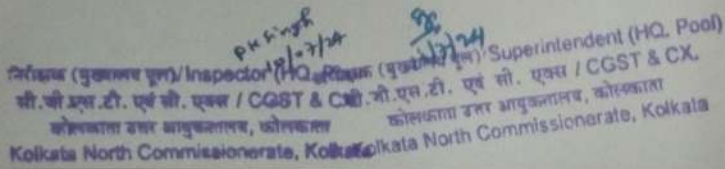 PK Singh
निरीक्षक (मुख्यालय पूल)/Inspector (HQ
सी.जी.एस.टी. एवं सी. एक्स / CGST & CX
कोलकाता उत्तर आयुक्तालय, कोलकाता
Kolkata North Commissionerate, Kolkata
/7/24
(मुख्यालय पूल)/Superintendent (HQ. Pool)
सी.जी.एस.टी. एवं सी. एक्स / CGST & CX.
कोलकाता उत्तर आयुक्तालय, कोलकाता
Kolkata North Commissionerate, Kolkata